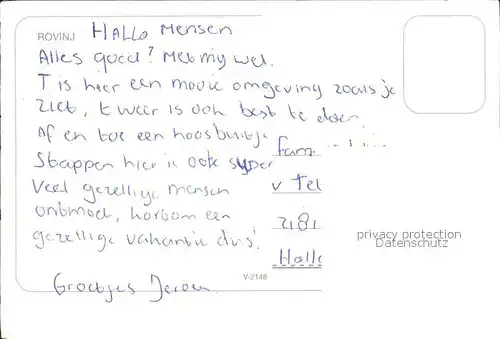 ROVINJ HALLO mensen
Alles goed? Met mij wel.
T is hier een mooie omgeving zoals je
ziet, t weer is ook best te doen.
Af en toe een hoosbuitje
Stappen hier is ook super
Veel gezellige mensen
ontmoet, kortom een
gezellige vakantie dus!
Groetjes Jeroen
fam.
v Tel
2181
Hallo
V-2148
privacy protection
Datenschutz